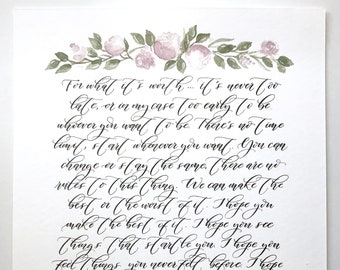 For what it's worth... it's never too
late, or in my case too early to be
whoever you want to be. There's no time
limit, start whenever you want. You can
change or stay the same, there are no
rules to this thing. We can make the
best or the worst of it. I hope you
make the best of it. I hope you see
things that startle you. I hope you
feel things you never felt before. I hope